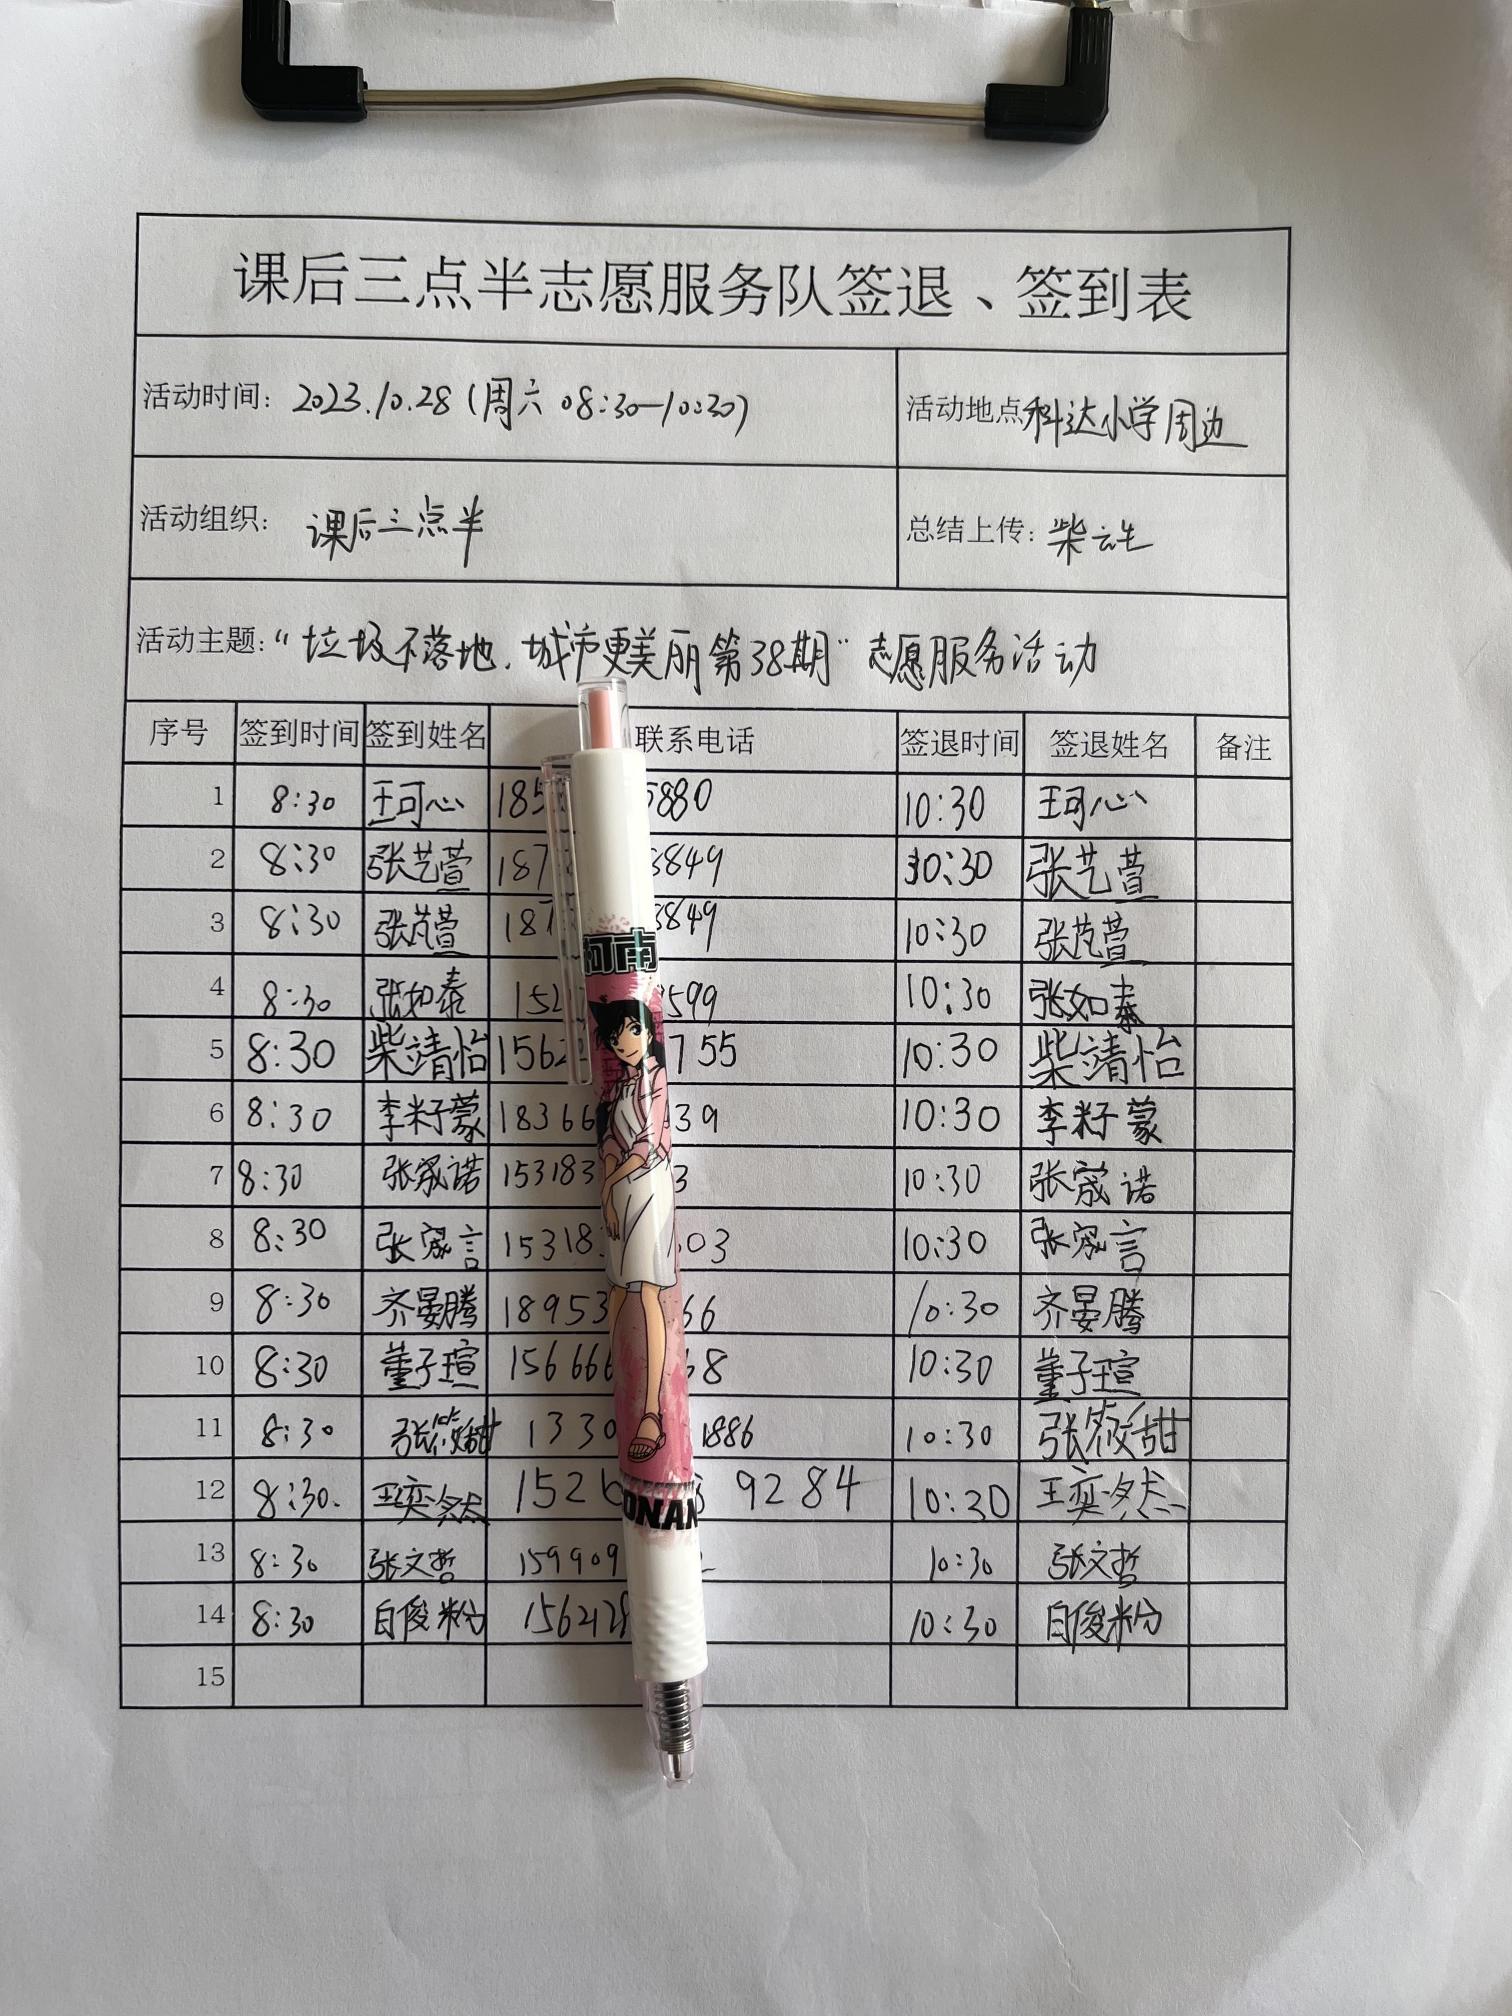 课后三点半志愿服务队签退、签到表
活动时间: 2023.10.28(周六 08:30—10:30) 活动地点 科达小学周边
活动组织: 课后三点半 总结上传: 柴云生
活动主题:“垃圾不落地,城市更美丽第38期”志愿服务活动
序号 签到时间 签到姓名 联系电话 签退时间 签退姓名 备注
1 8:30 王可心 185 5880 10:30 王可心
2 8:30 张艺萱 187 3849 10:30 张艺萱
3 8:30 张芃萱 187 3849 10:30 张芃萱
4 8:30 张如泰 152 599 10:30 张如泰
5 8:30 柴靖怡 1562 755 10:30 柴靖怡
6 8:30 李籽蒙 18366 39 10:30 李籽蒙
7 8:30 张宬诺 153183 3 10:30 张宬诺
8 8:30 张宬言 15318 03 10:30 张宬言
9 8:30 齐晏腾 18953 66 10:30 齐晏腾
10 8:30 董子瑄 156666 68 10:30 董子瑄
11 8:30 张筱甜 1330 1886 10:30 张筱甜
12 8:30. 王奕然 1526 9284 10:30 王奕然
13 8:30 张文哲 159909 10:30 张文哲
14 8:30 白俊粉 156428 10:30 白俊粉
15
柯南
ONAN